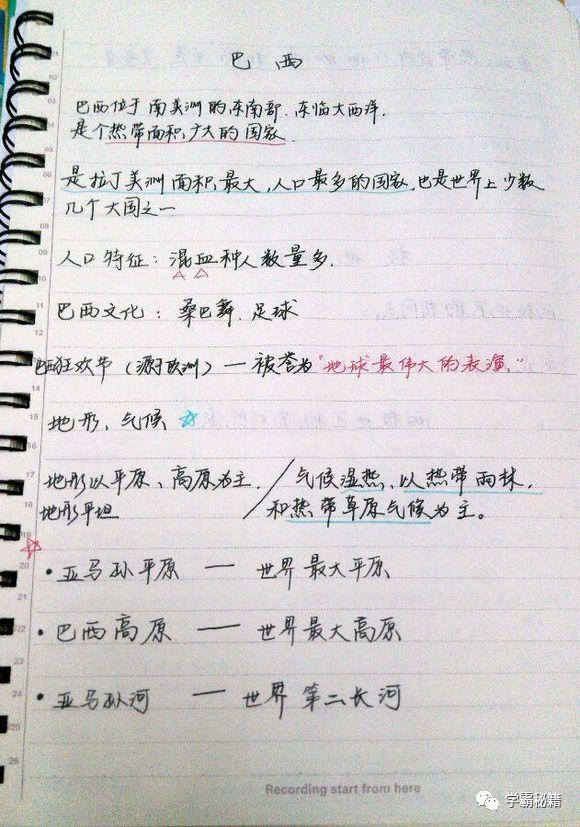 巴西
巴西位于南美洲的东南部.东临大西洋.
是个热带面积广大的国家.
是拉丁美洲面积最大,人口最多的国家.也是世界上少数
几个大国之一
人口特征:混血种人数量多.
巴西文化:桑巴舞.足球
巴西狂欢节(源于欧洲)—被誉为"地球最伟大的表演."
地形、气候
地形以平原、高原为主. / 气候湿热.以热带雨林.
地形平坦 和热带草原气候为主。
• 亚马孙平原 — 世界最大平原
• 巴西高原 — 世界最大高原
• 亚马孙河 — 世界第二长河
Recording start from here
学霸秘籍